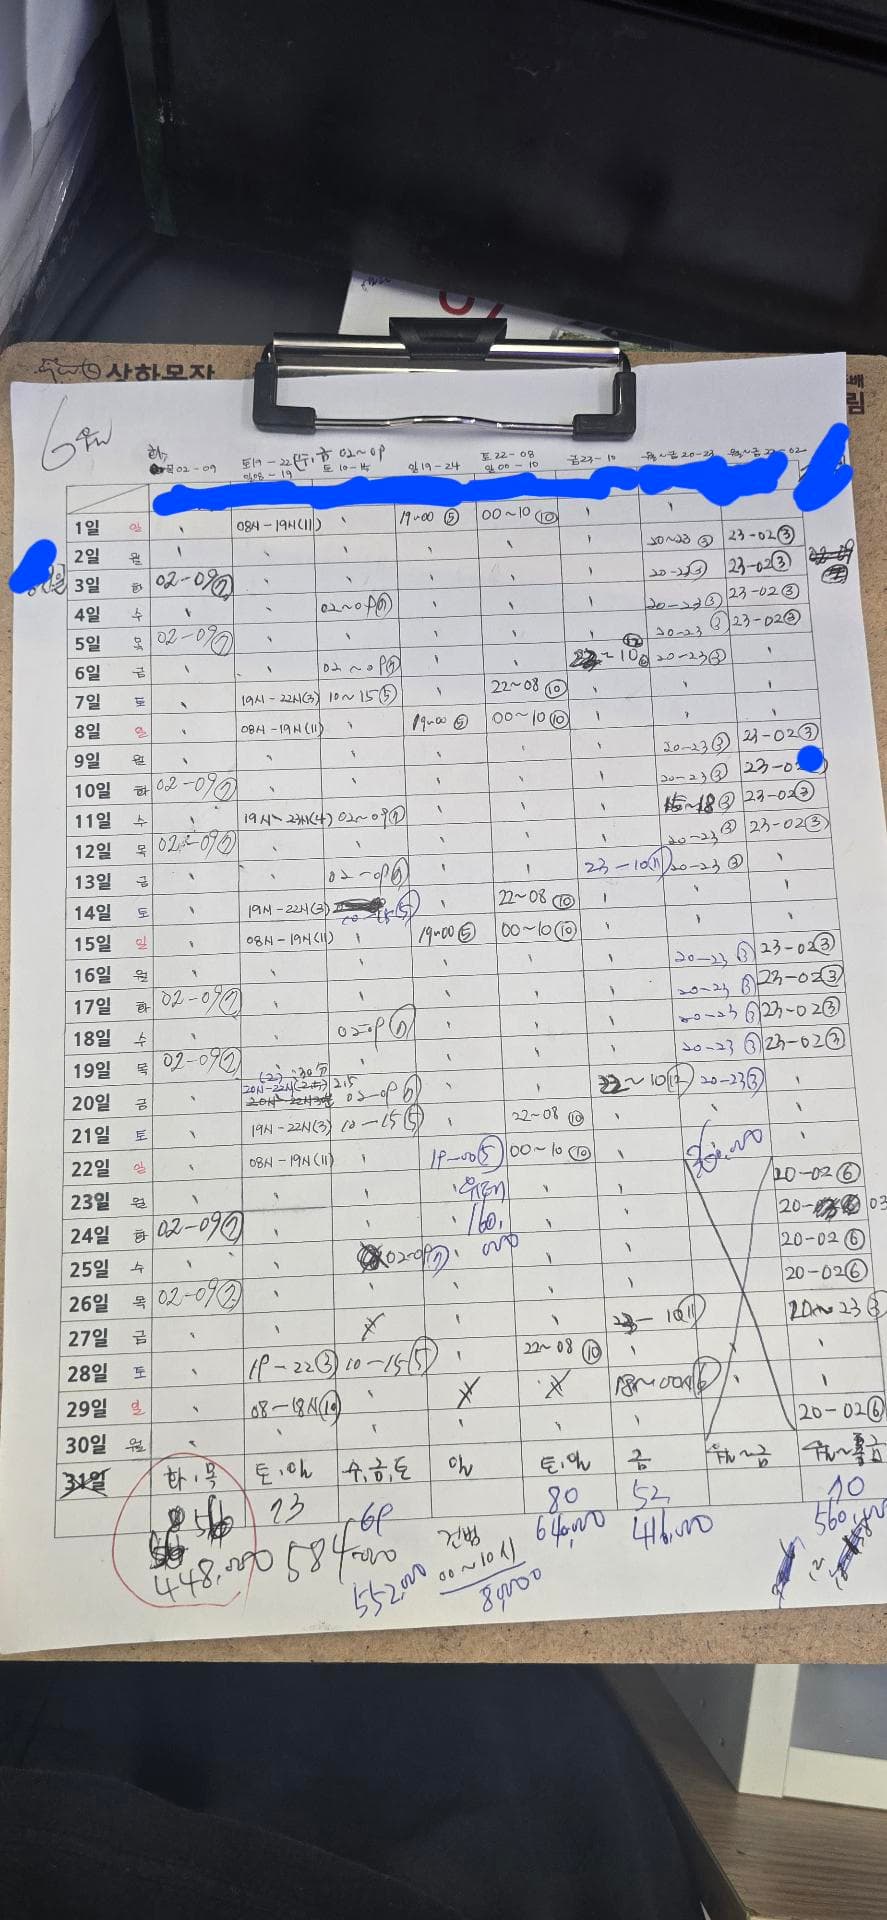 상하목장
6월
화, 목 02-09 토19-22 일08-19 수, 금 02~09 토 10-15 일19-24 토 22-08 일 00-10 금23-10 월~금 20-23 월~금 23-02
1일 일 08시-19시(11) 19-00 ⑤ 00~10 ⑩
2일 월 20~23 ③ 23-02 ③
3일 화 02-09 ⑦ 20-23 ③ 23-02 ③
4일 수 02~09 ⑦ 20-23 ③ 23-02 ③
5일 목 02-09 ⑦ 20-23 ③ 23-02 ③
6일 금 02~09 ⑦ ~10 20-23 ③
7일 토 19시-22시(3) 10~15 ⑤ 22~08 ⑩
8일 일 08시-19시(11) 19-00 ⑤ 00~10 ⑩
9일 월 20-23 ③ 23-02 ③
10일 화 02-09 ⑦ 20-23 ③ 23-0
11일 수 19시-23시(4) 02~09 ⑦ 15~18 ③ 23-02 ③
12일 목 02-09 ⑦ 20-23 ③ 23-02 ③
13일 금 02-09 ⑦ 23-10 ⑪ 20-23 ③
14일 토 19시-22시(3) 10-15 ⑤ 22~08 ⑩
15일 일 08시-19시(11) 19-00 ⑤ 00~10 ⑩
16일 월 20-23 ③ 23-02 ③
17일 화 02-09 ⑦ 20-23 ③ 23-02 ③
18일 수 02-09 ⑦ 20-23 ③ 23-02 ③
19일 목 02-09 ⑦ 20-23 ③ 23-02 ③
20일 금 20시-22시 2.5 02-09 ⑦ 22~10 ⑫ 20-23 ③
21일 토 19시-22시(3) 10-15 ⑤ 22~08 ⑩
22일 일 08시-19시(11) 19-00 ⑤ 00~10 ⑩ 360,000
23일 월 20-02 ⑥
24일 화 02-09 ⑦ 160,000 20- 03
25일 수 02-09 ⑦ 20-02 ⑥
26일 목 02-09 ⑦ 20-02 ⑥
27일 금 23-10 ⑪ 20~23 ③
28일 토 19-22 ③ 10-15 ⑤ 22~08 ⑩
29일 일 08-18시 ⑩ 18~00시 ⑥
30일 월 20-02 ⑥
31일 화, 목 토, 일 수, 금, 토 일 토, 일 금 월~금 월~금
56 73 69 80 52 70
448,000 584,000 552,000 00~10시 80,000 640,000 416,000 560,000